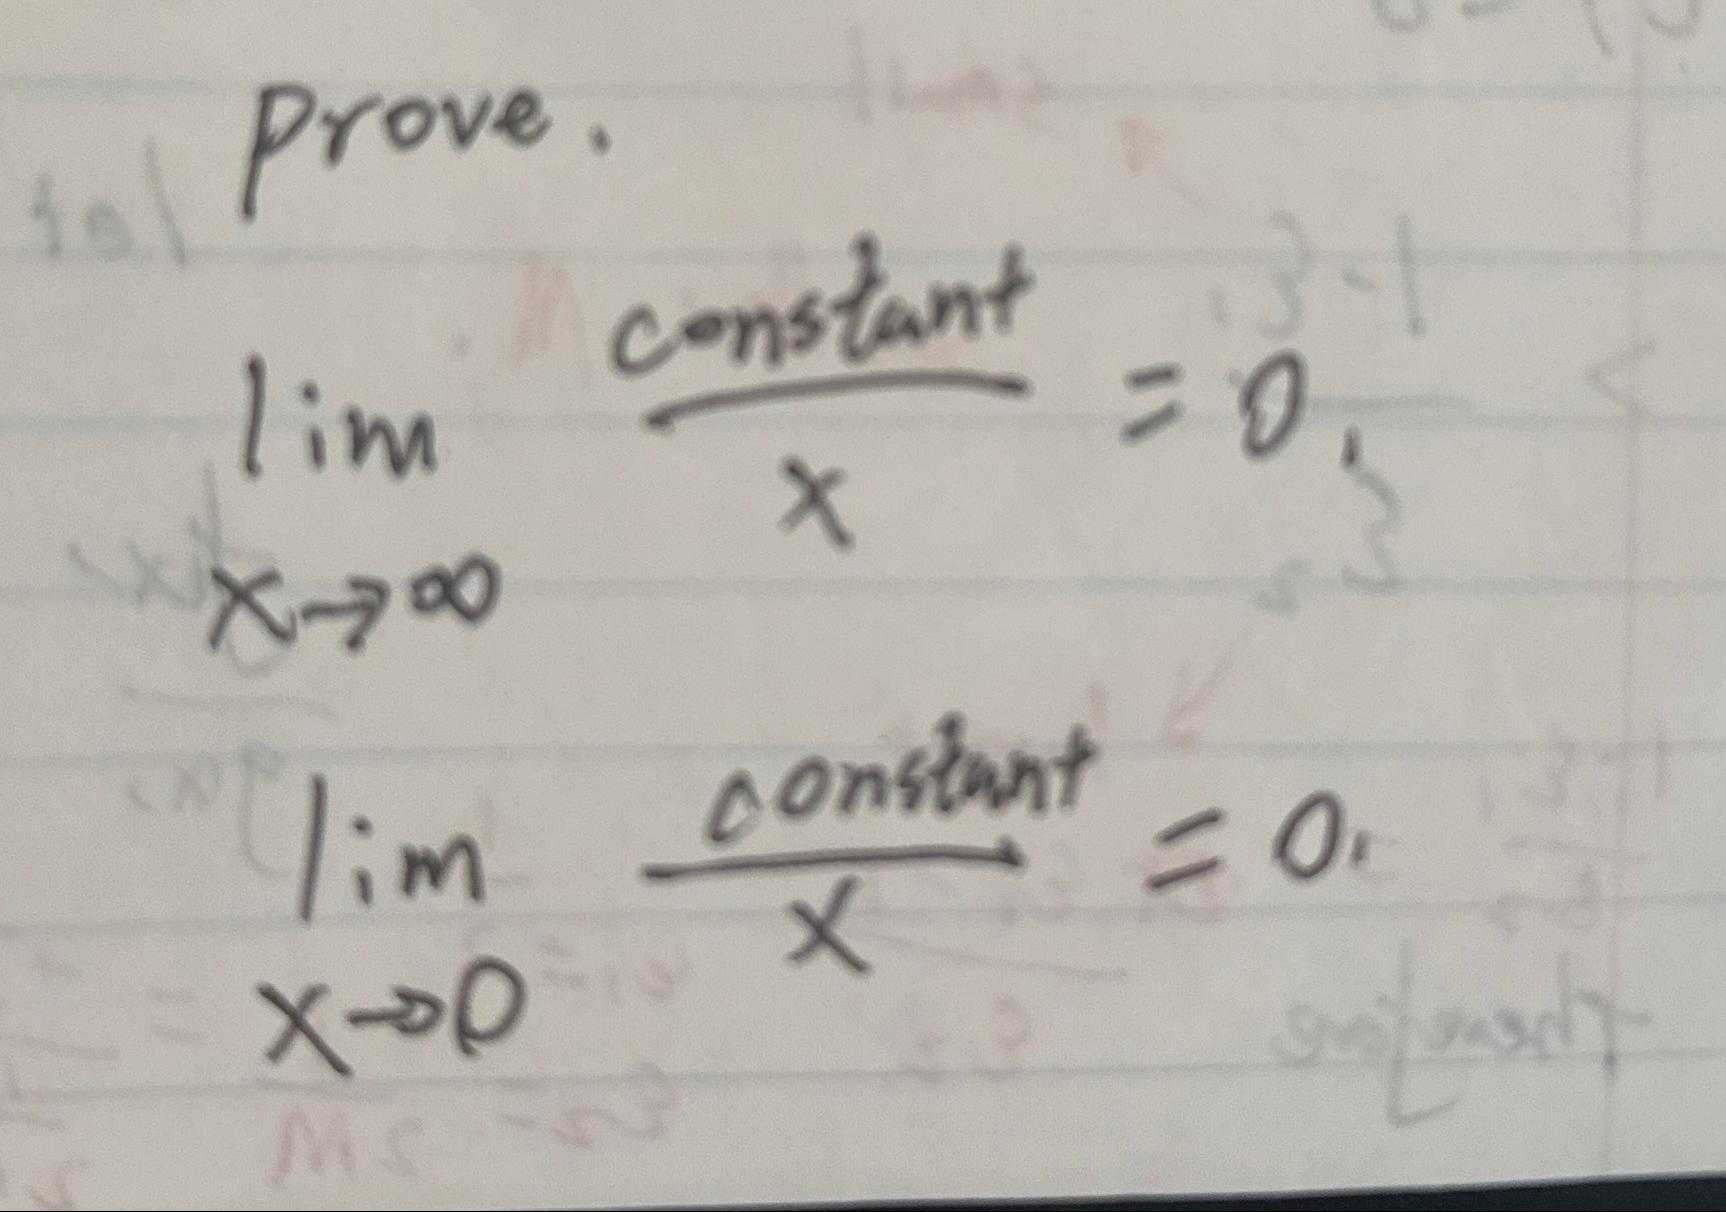 Prove.
lim constant/x = 0,
x→∞
lim constant/x = 0.
x→0